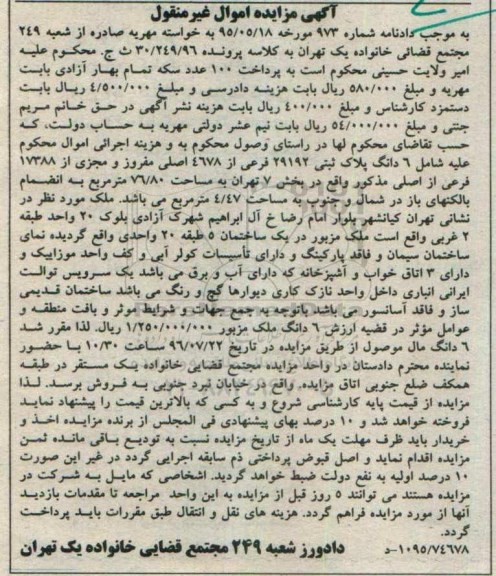 آگهی مزایده اموال غیرمنقول
به موجب دادنامه شماره ۹۷۳ مورخه ۹۵/۰۵/۱۸ به خواسته مهریه صادره از شعبه ۲۴۹
مجتمع قضائی خانواده یک تهران به کلاسه پرونده ۳۰/۲۴۹/۹۶ ث ج. محکوم علیه
امیر ولایت حسینی محکوم است به پرداخت ۱۰۰ عدد سکه تمام بهار آزادی بابت
مهریه و مبلغ ۵۸۰/۰۰۰ ریال بابت هزینه دادرسی و مبلغ ۴/۵۰۰/۰۰۰ ریال بابت
دستمزد کارشناس و مبلغ ۴۰۰/۰۰۰ ریال بابت هزینه نشر آگهی در حق خانم مریم
جنتی و مبلغ ۵۴/۰۰۰/۰۰۰ ریال بابت نیم عشر دولتی مهریه به حساب دولت، که
حسب تقاضای محکوم لها در راستای وصول محکوم به و هزینه اجرائی اموال محکوم
علیه شامل ۶ دانگ پلاک ثبتی ۲۹۱۹۲ فرعی از ۴۶۷۸ اصلی مفروز و مجزی از ۱۷۳۸۸
فرعی از اصلی مذکور واقع در بخش ۷ تهران به مساحت ۷۶/۸۰ مترمربع به انضمام
بالکنهای باز در شمال و جنوب به مساحت ۴/۴۷ مترمربع می باشد. ملک مورد نظر در
نشانی تهران کیانشهر بلوار امام رضا خ آل ابراهیم شهرک آزادی بلوک ۲۰ واحد طبقه
۲ غربی واقع است ملک مزبور در یک ساختمان ۵ طبقه ۲۰ واحدی واقع گردیده نمای
ساختمان سیمان و فاقد پارکینگ و دارای تأسیسات کولر آبی و کف واحد موزاییک و
دارای ۳ اتاق خواب و آشپزخانه که دارای آب و برق می باشد یک سرویس توالت
ایرانی انباری داخل واحد نازک کاری دیوارها گچ و رنگ می باشد ساختمان قدیمی
ساز و فاقد آسانسور می باشد باتوجه به جمع جهات و شرایط موثر و بافت منطقه و
عوامل مؤثر در قضیه ارزش ۶ دانگ ملک مزبور ۱/۲۵۰/۰۰۰/۰۰۰ ریال. لذا مقرر شد
۶ دانگ مال موصول از طریق مزایده در تاریخ ۹۶/۰۷/۲۲ ساعت ۱۰/۳۰ با حضور
نماینده محترم دادستان در واحد مزایده مجتمع قضایی خانواده یک مستقر در طبقه
همکف ضلع جنوبی اتاق مزایده، واقع در خیابان نبرد جنوبی به فروش برسد. لذا
مزایده از قیمت پایه کارشناسی شروع و به کسی که بالاترین قیمت را پیشنهاد نماید
فروخته خواهد شد و ۱۰ درصد بهای پیشنهادی فی المجلس از برنده مزایده اخذ و
خریدار باید ظرف مهلت یک ماه از تاریخ مزایده نسبت به تودیع باقی مانده ثمن
مزایده اقدام نماید و اصل قبوض پرداختی ذم سابقه اجرایی گردد در غیر این صورت
۱۰ درصد اولیه به نفع دولت ضبط خواهد گردید. اشخاصی که مایل به شرکت در
مزایده هستند می توانند ۵ روز قبل از مزایده به این واحد مراجعه تا مقدمات بازدید
آنها از مورد مزایده فراهم گردد. هزینه های نقل و انتقال طبق مقررات باید پرداخت
گردد.
۱۰۹۵/۷۴۶۷۸-د دادورز شعبه ۲۴۹ مجتمع قضایی خانواده یک تهران